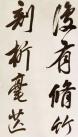 後有脩竹
剖析毫芒